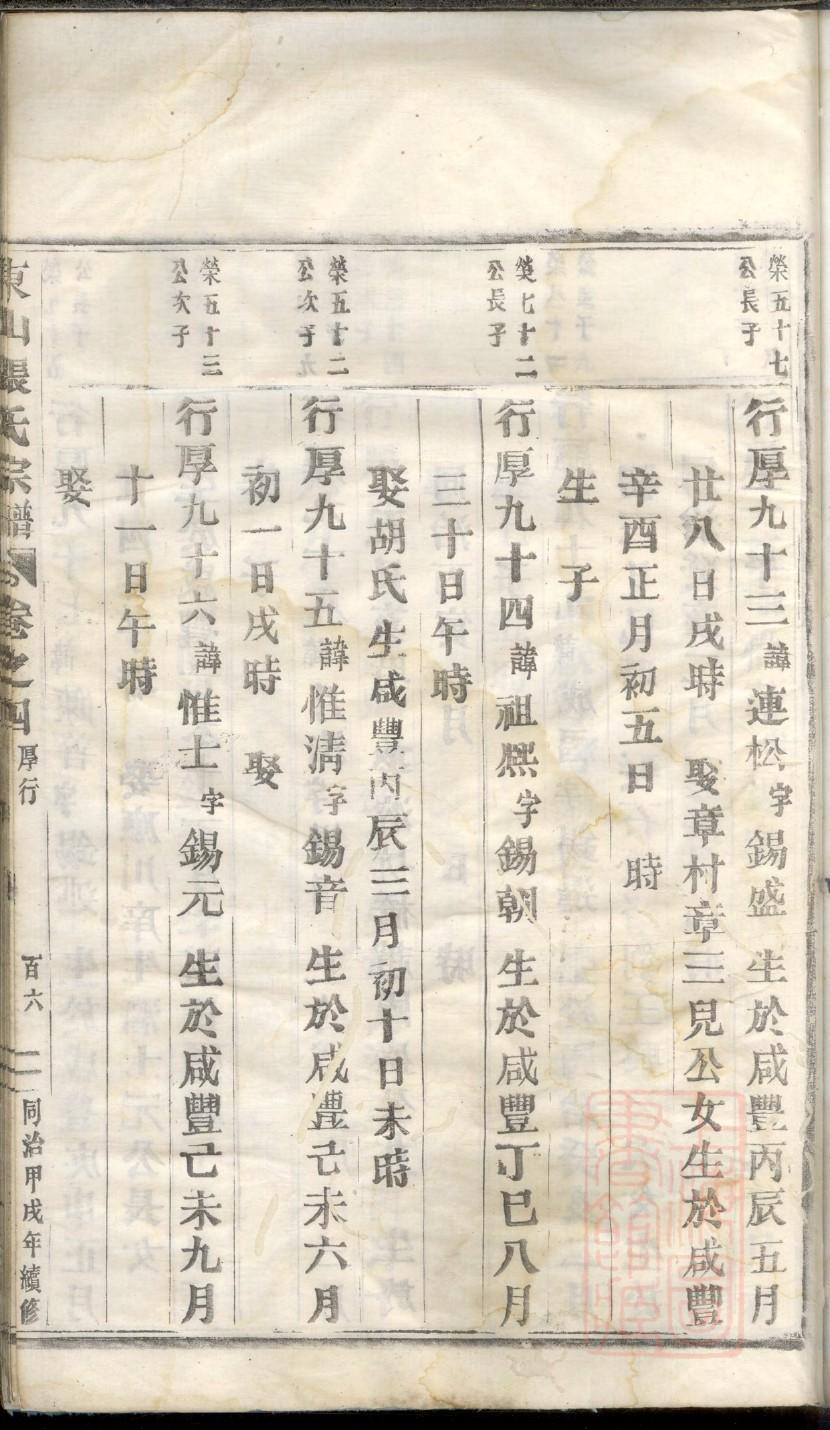 榮五十七
公長子
行厚九十三諱連松字錫盛 生於咸豐丙辰五月
廿八日戌時 娶章村章三兒公女生於咸豐
辛酉正月初五日 時
生 子
榮七十二
公長子
行厚九十四諱祖熈字錫朝 生於咸豐丁巳八月
三十日午時
娶胡氏生咸豐丙辰三月初十日未時
榮五十二
公次子
行厚九十五諱惟清字錫音 生於咸豐己未六月
初一日戌時 娶
榮五十三
公次子
行厚九十六諱惟士字錫元 生於咸豐己未九月
十一日午時
娶
東山張氏宗譜 卷之四 厚行 百六 同治甲戌年續修